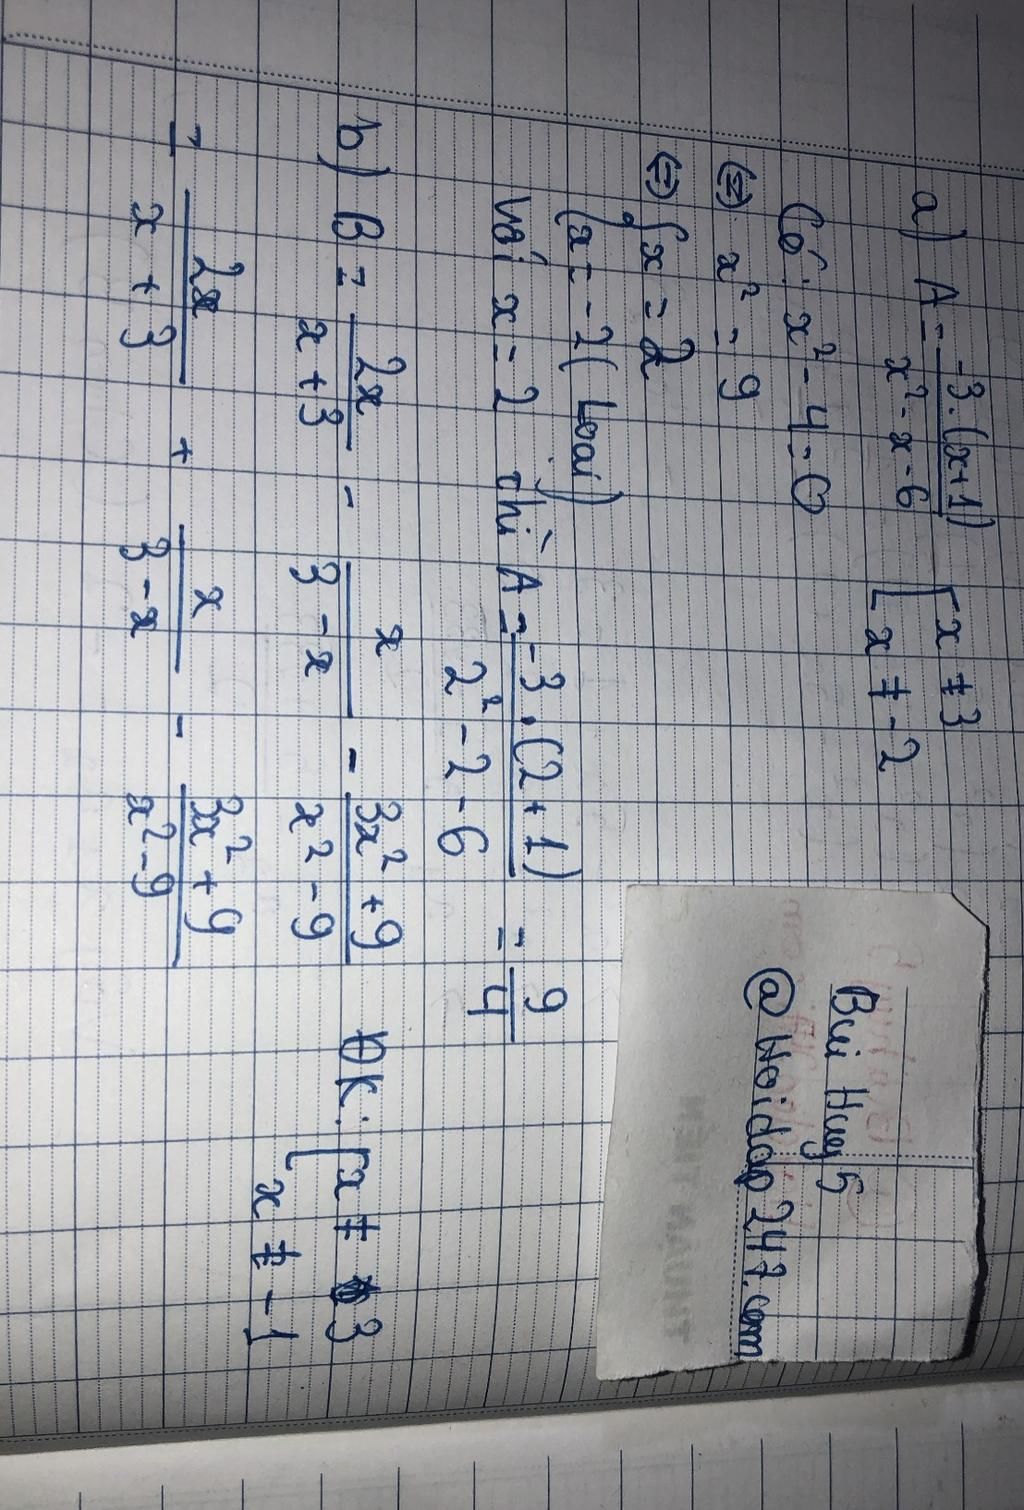 a) A = -3.(x+1) / x² - x - 6 [ x ≠ 3
x ≠ -2
Có: x² - 4 = 0
⇔ x² = 9
⇔ { x = 2
{ x = -2 ( loại)
Với x = 2 thì A = -3.(2+1) / 2² - 2 - 6 = 9/4
b) B = 2x / x + 3 - x / 3 - x - 3x² + 9 / x² - 9 ĐK: [ x ≠ 3
x ≠ -1
= 2x / x + 3 + x / 3 - x - 3x² + 9 / x² - 9
Bui Huy 5
@Hoidap247.com